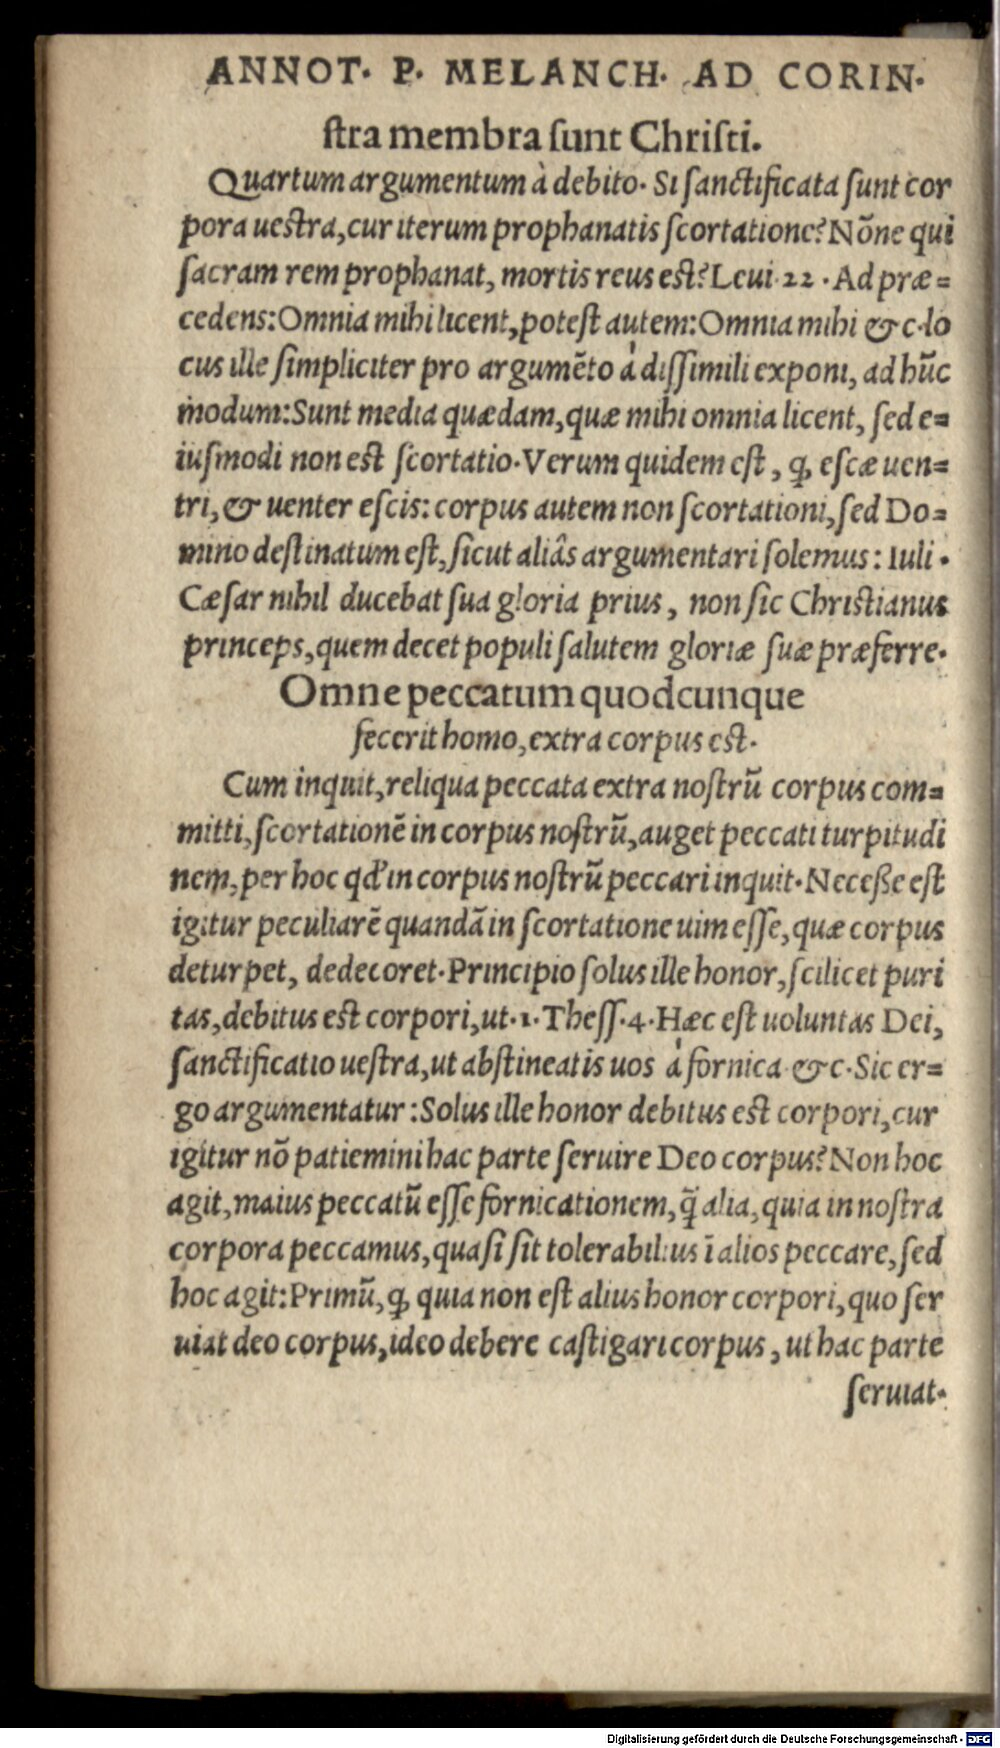 ANNOT. P. MELANCH. AD CORIN.
ſtra membra ſunt Chriſti.
Quartum argumentum à debito. Si ſanctificata ſunt cor
pora ueſtra, cur iterum prophanatis ſcortatione? Nõne qui
ſacram rem prophanat, mortis reus eſt? Leui. 22. Ad præ=
cedens: Omnia mihi licent, poteſt autem: Omnia mihi &c. lo
cus ille ſimpliciter pro argumẽto à diſſimili exponi, ad hũc
modum: Sunt media quædam, quæ mihi omnia licent, ſed e=
iuſmodi non eſt ſcortatio. Verum quidem eſt, ꝙ eſcæ uen=
tri, & uenter eſcis: corpus autem non ſcortationi, ſed Do=
mino deſtinatum eſt, ſicut aliâs argumentari ſolemus: Iuli.
Cæſar nihil ducebat ſua gloria prius, non ſic Chriſtianus
princeps, quem decet populi ſalutem gloriæ ſuæ præferre.
Omne peccatum quodcunque
fecerit homo, extra corpus eſt.
Cum inquit, reliqua peccata extra noſtrũ corpus com=
mitti, ſcortationẽ in corpus noſtrũ, auget peccati turpitudi
nem, per hoc qd' in corpus noſtrũ peccari inquit. Neceße eſt
igitur peculiarẽ quandã in ſcortatione uim eſſe, quæ corpus
deturpet, dedecoret. Principio ſolus ille honor, ſcilicet puri
tas, debitus eſt corpori, ut. 1. Theſſ. 4. Hæc eſt uoluntas Dei,
ſanctificatio ueſtra, ut abſtineatis uos à fornica &c. Sic er=
go argumentatur: Solus ille honor debitus eſt corpori, cur
igitur nõ patiemini hac parte ſeruire Deo corpus? Non hoc
agit, maius peccatũ eſſe fornicationem, q̃ alia, quia in noſtra
corpora peccamus, quaſi ſit tolerabilius ĩ alios peccare, ſed
hoc agit: Primũ, ꝙ quia non eſt alius honor corpori, quo ſer
uiat deo corpus, ideo debere caſtigari corpus, ut hac parte
ſeruiat.
Digitalisierung gefördert durch die Deutsche Forschungsgemeinschaft - DFG